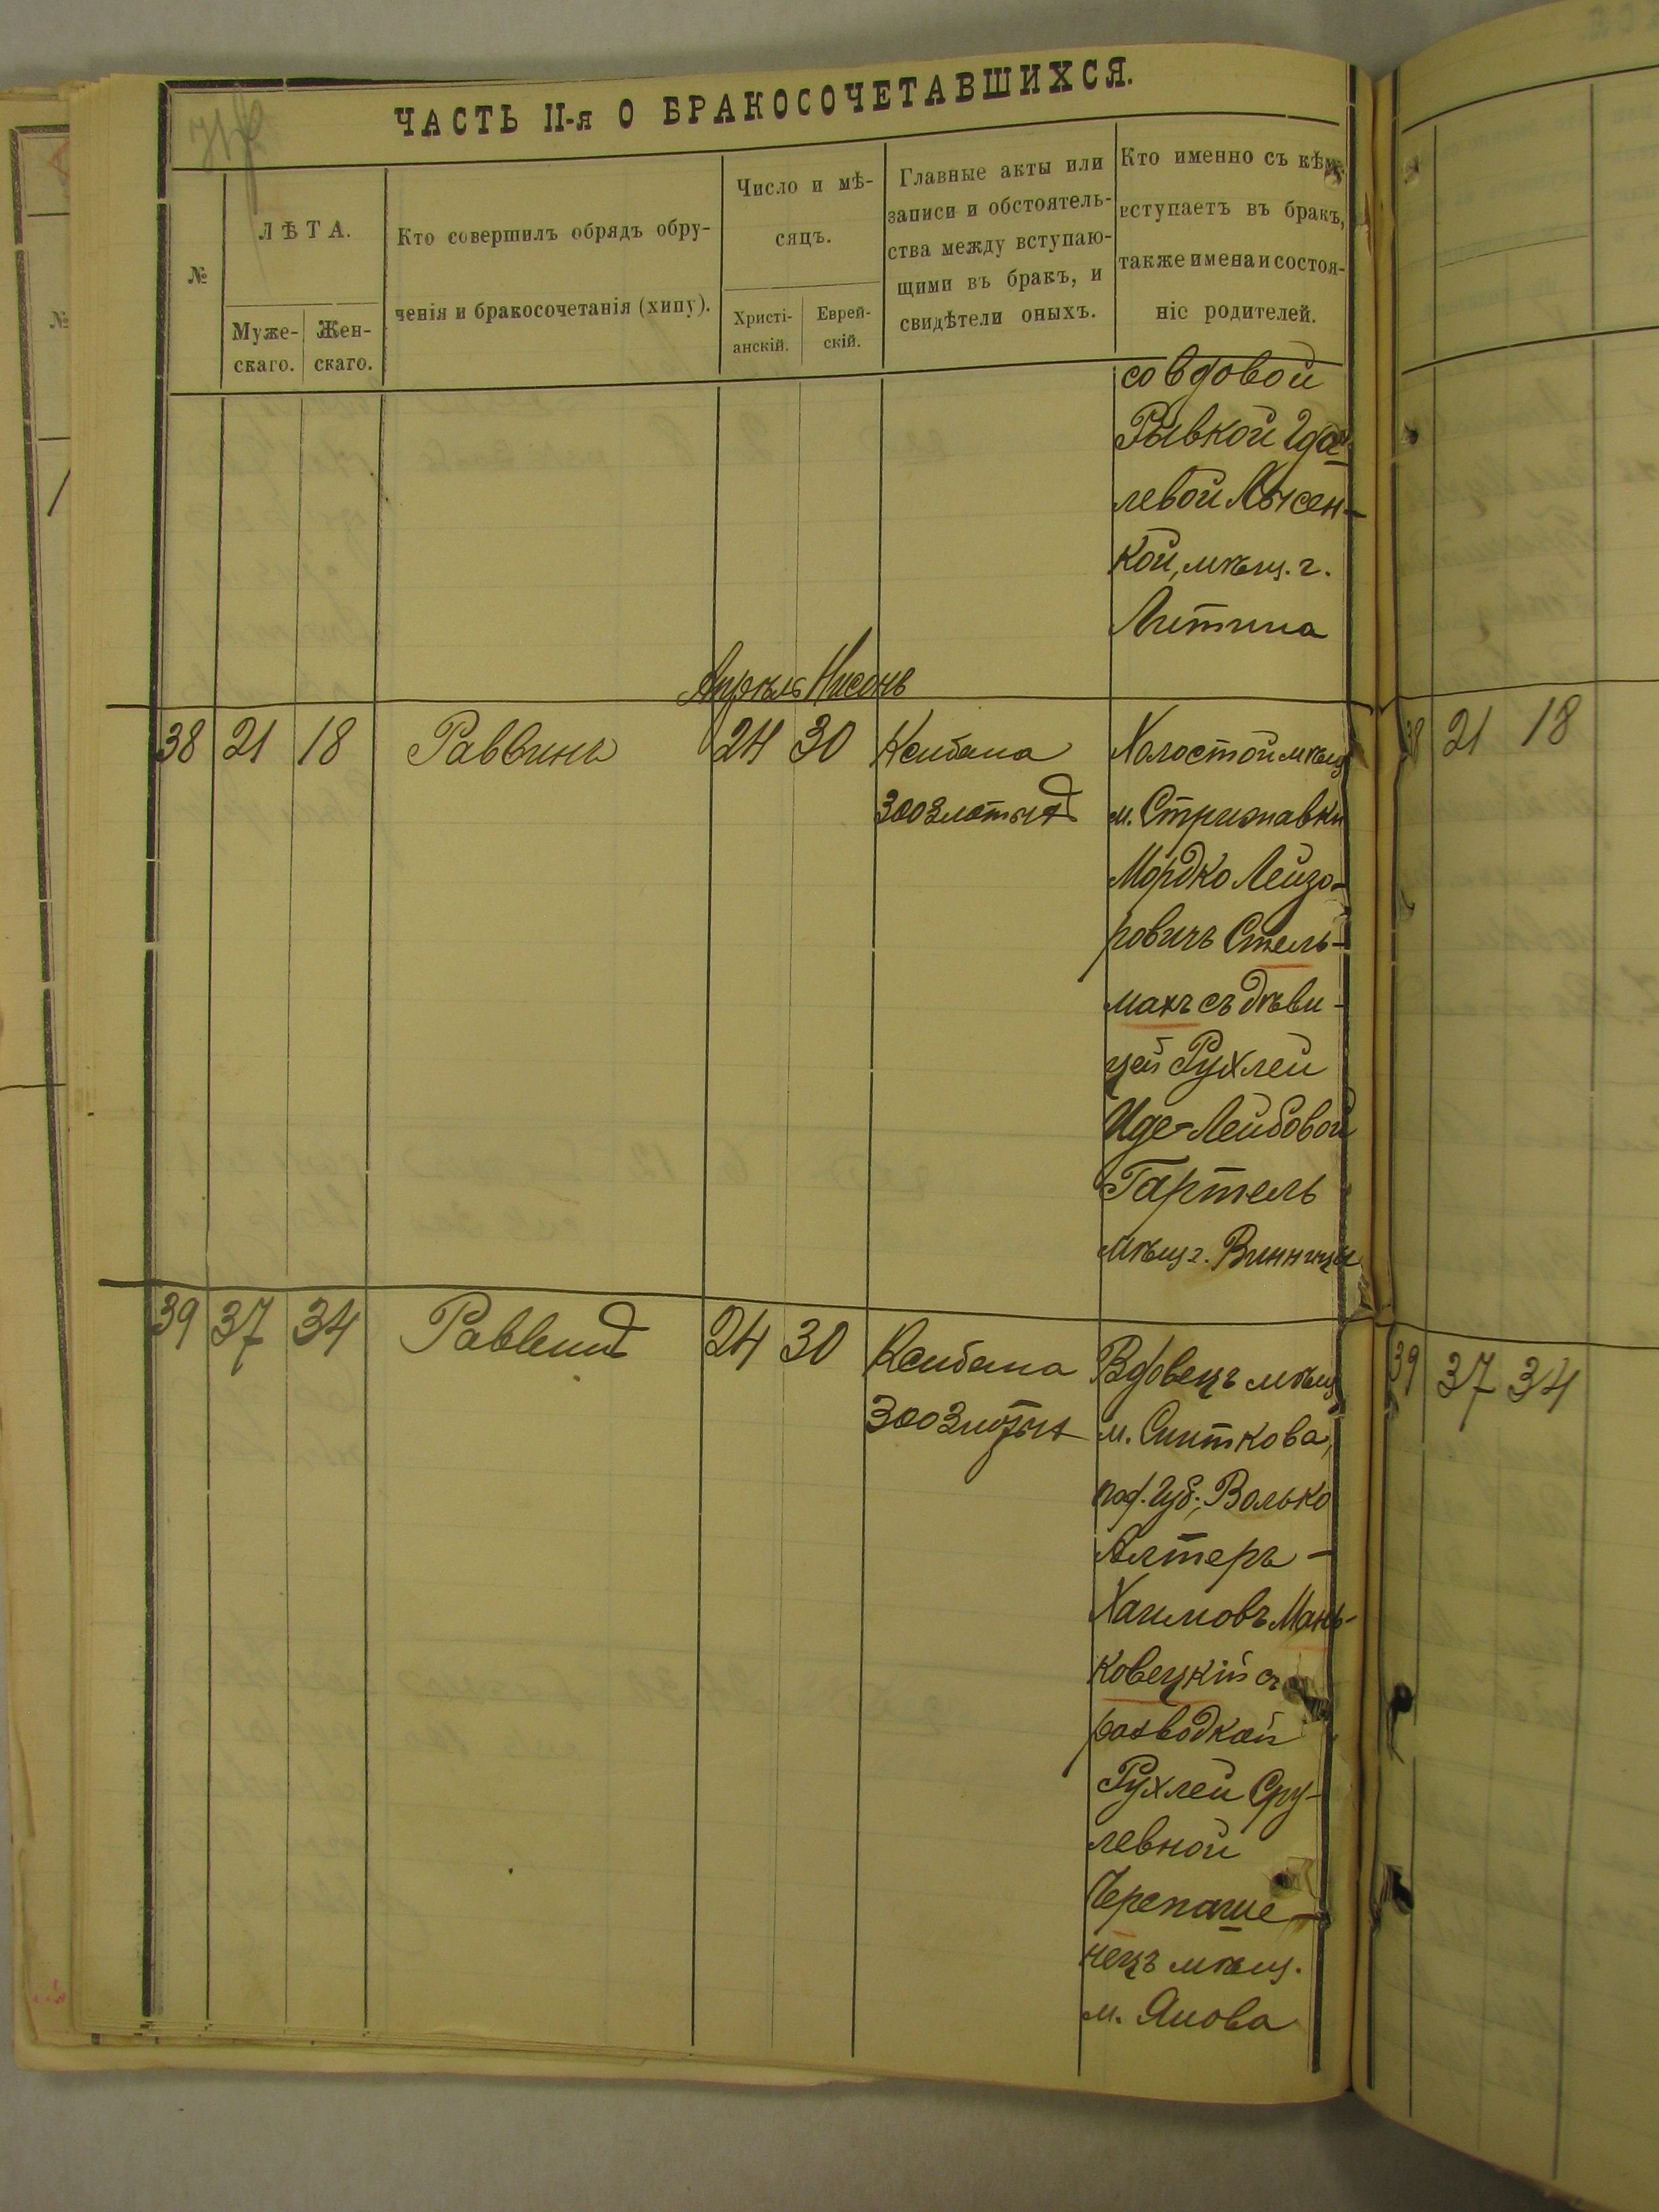 ЧАСТЬ II-я О БРАКОСОЧЕТАВШИХСЯ.
№
ЛѢТА.
Муже-
скаго.
Жен-
скаго.
Кто совершилъ обрядъ обру-
ченія и бракосочетанія (хипу).
Число и мѣ-
сяцъ.
Христі-
анскій.
Еврей-
скій.
Главные акты или
записи и обстоятель-
ства между вступаю-
щими въ бракъ, и
свидѣтели оныхъ.
Кто именно съ кѣмъ
вступаетъ въ бракъ,
также имена и состоя-
ніе родителей.
со вдовой
Рывкой Гда-
левой Лысен-
кой, мѣщ. г.
Литина
Апрѣль Нисонъ
38 21 18 Раввинъ 24 30
Ксибана
300 злотыхъ
Холостой мѣщ
м. Стрижавки
Мордко Лейзо-
ровичъ Стель-
махъ съ дѣви-
цей Рухлей
Иде-Лейбовой
Гартель
мѣщ г. Винницы
39 37 34 Раввинъ 24 30
Ксибана
300 злотых
Вдовецъ мѣщ
м. Сниткова,
под. губ., Волько
Алтеръ-
Хаимовъ Мань-
ковецкій съ
разводкой
Рухлей Сру-
левной
Черепаше-
нецъ мѣщ.
м. Янова
38 21 18
39 37 34
№